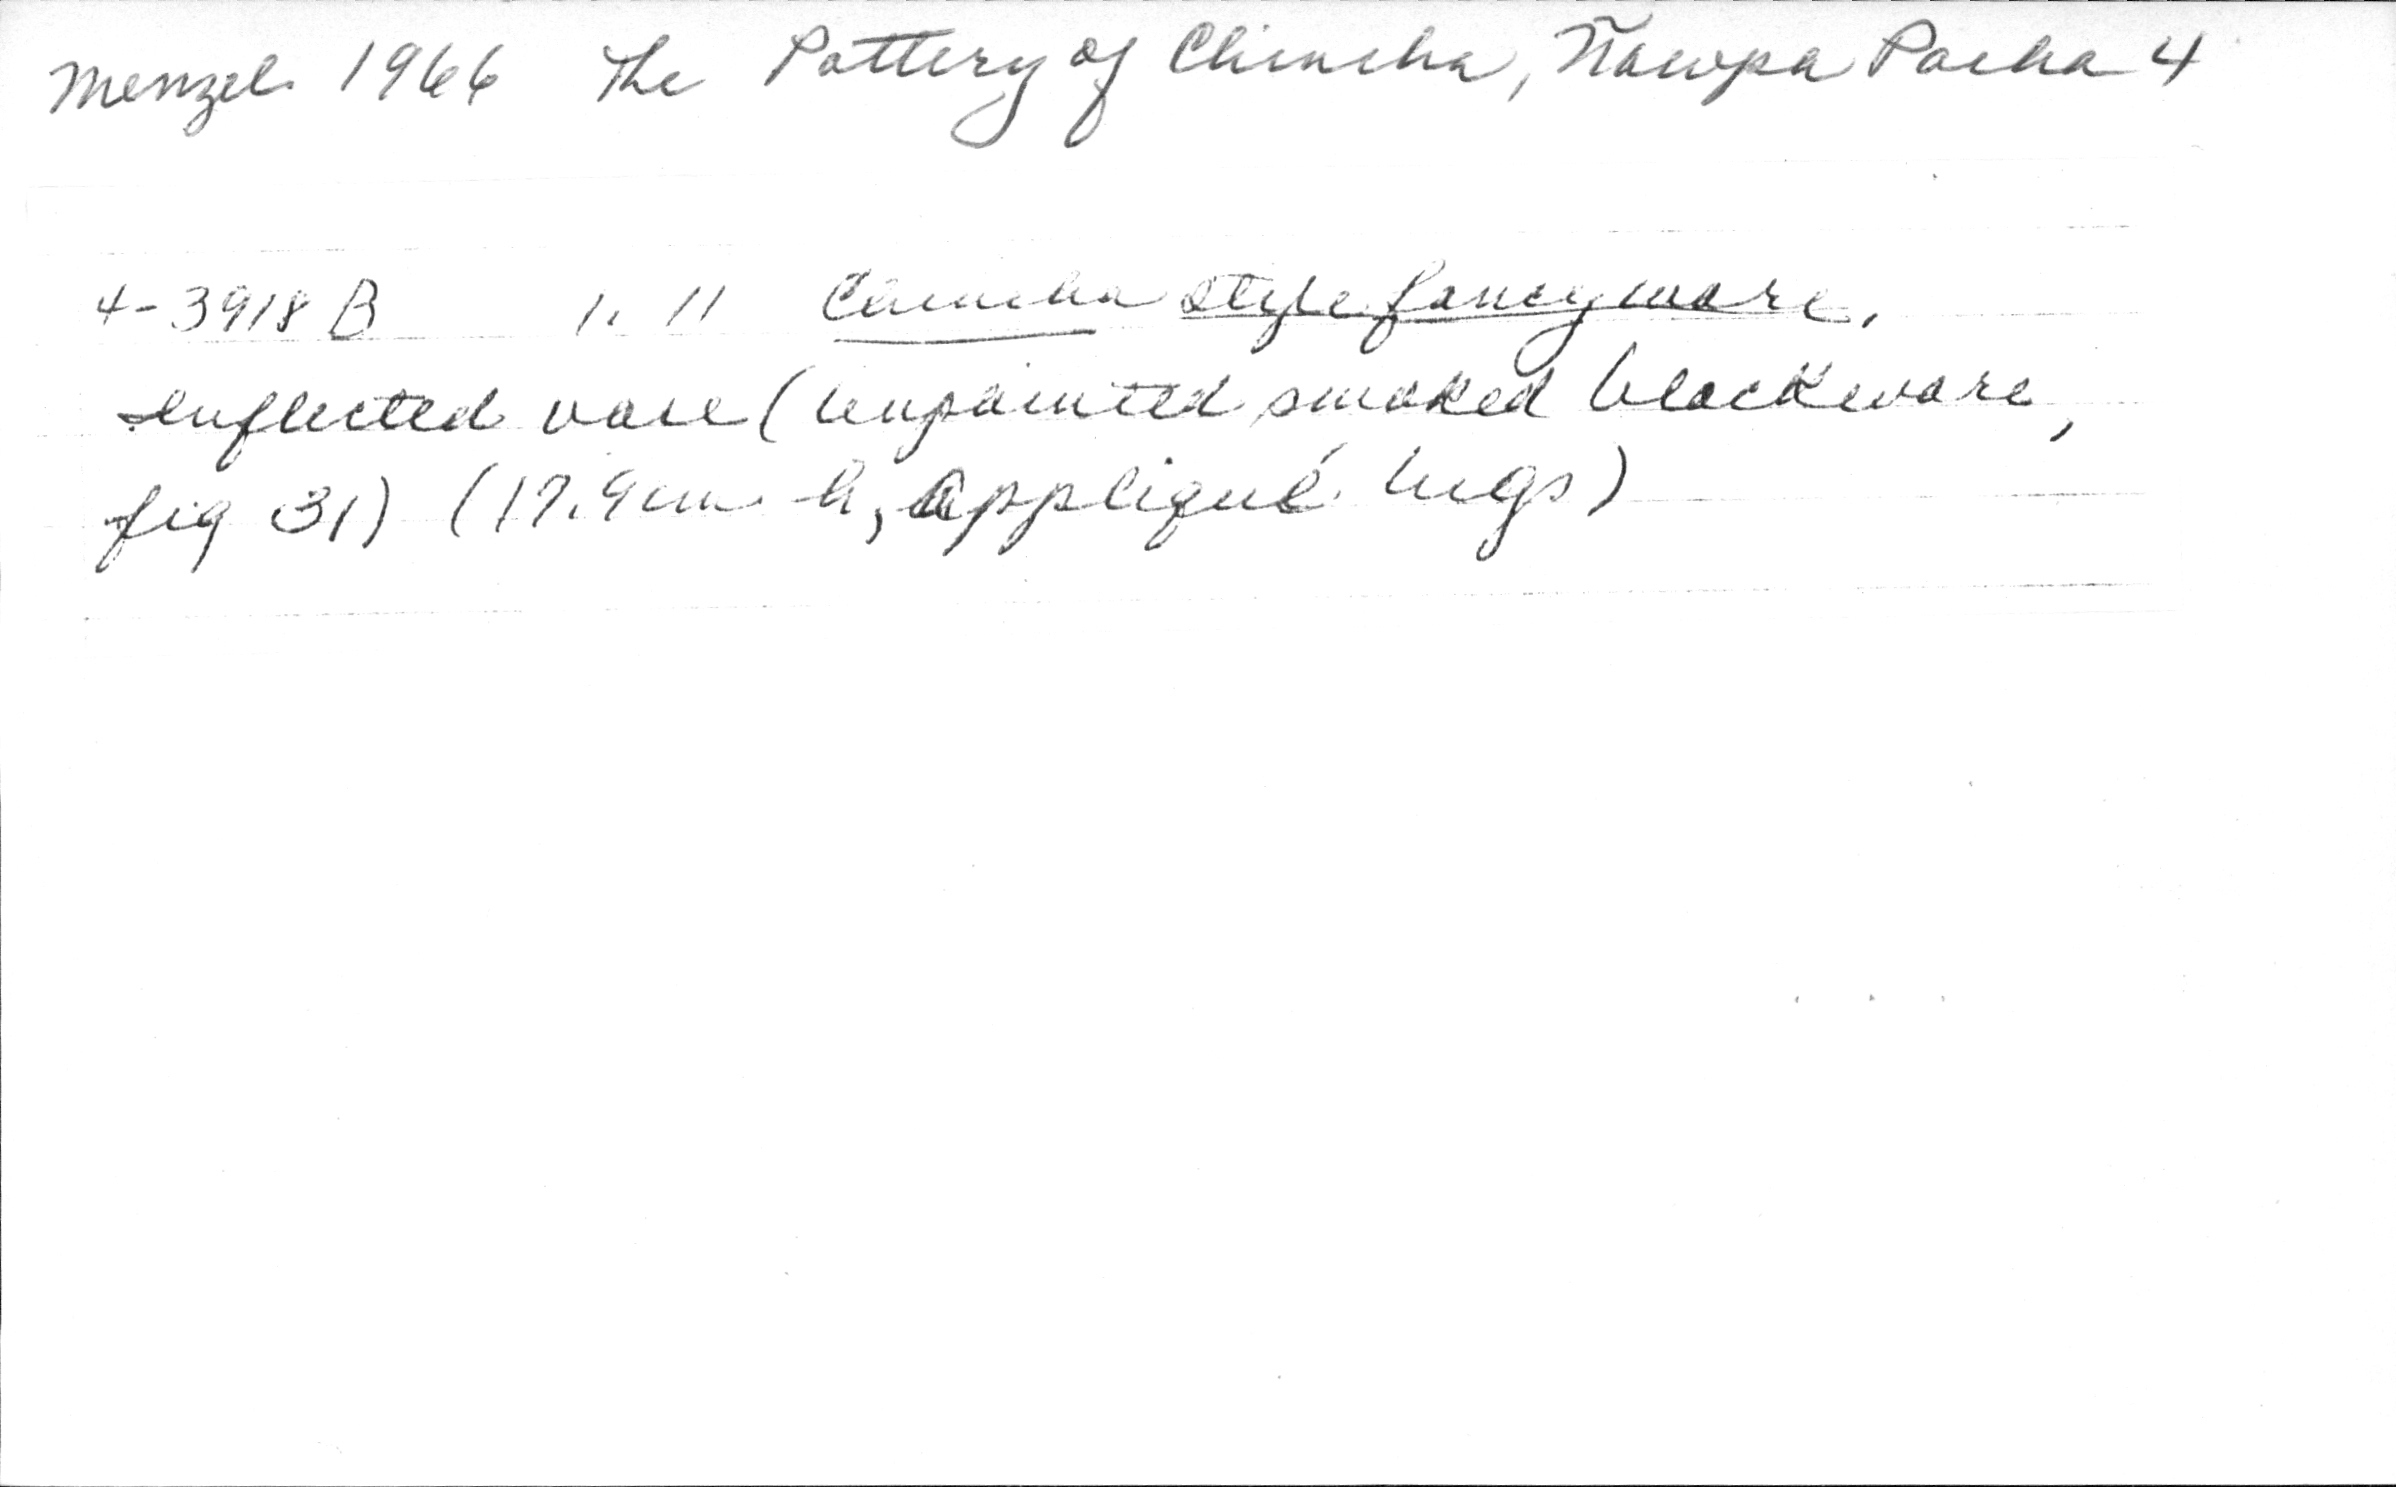 Menzel 1966 The Pottery of Chincha, Ñawpa Pacha 4
4-3918 B 1. 11 Chincha style fancyware,
inflected vase (unpainted smoked blackware,
fig 31) (17.9cm h, appliqué lugs)